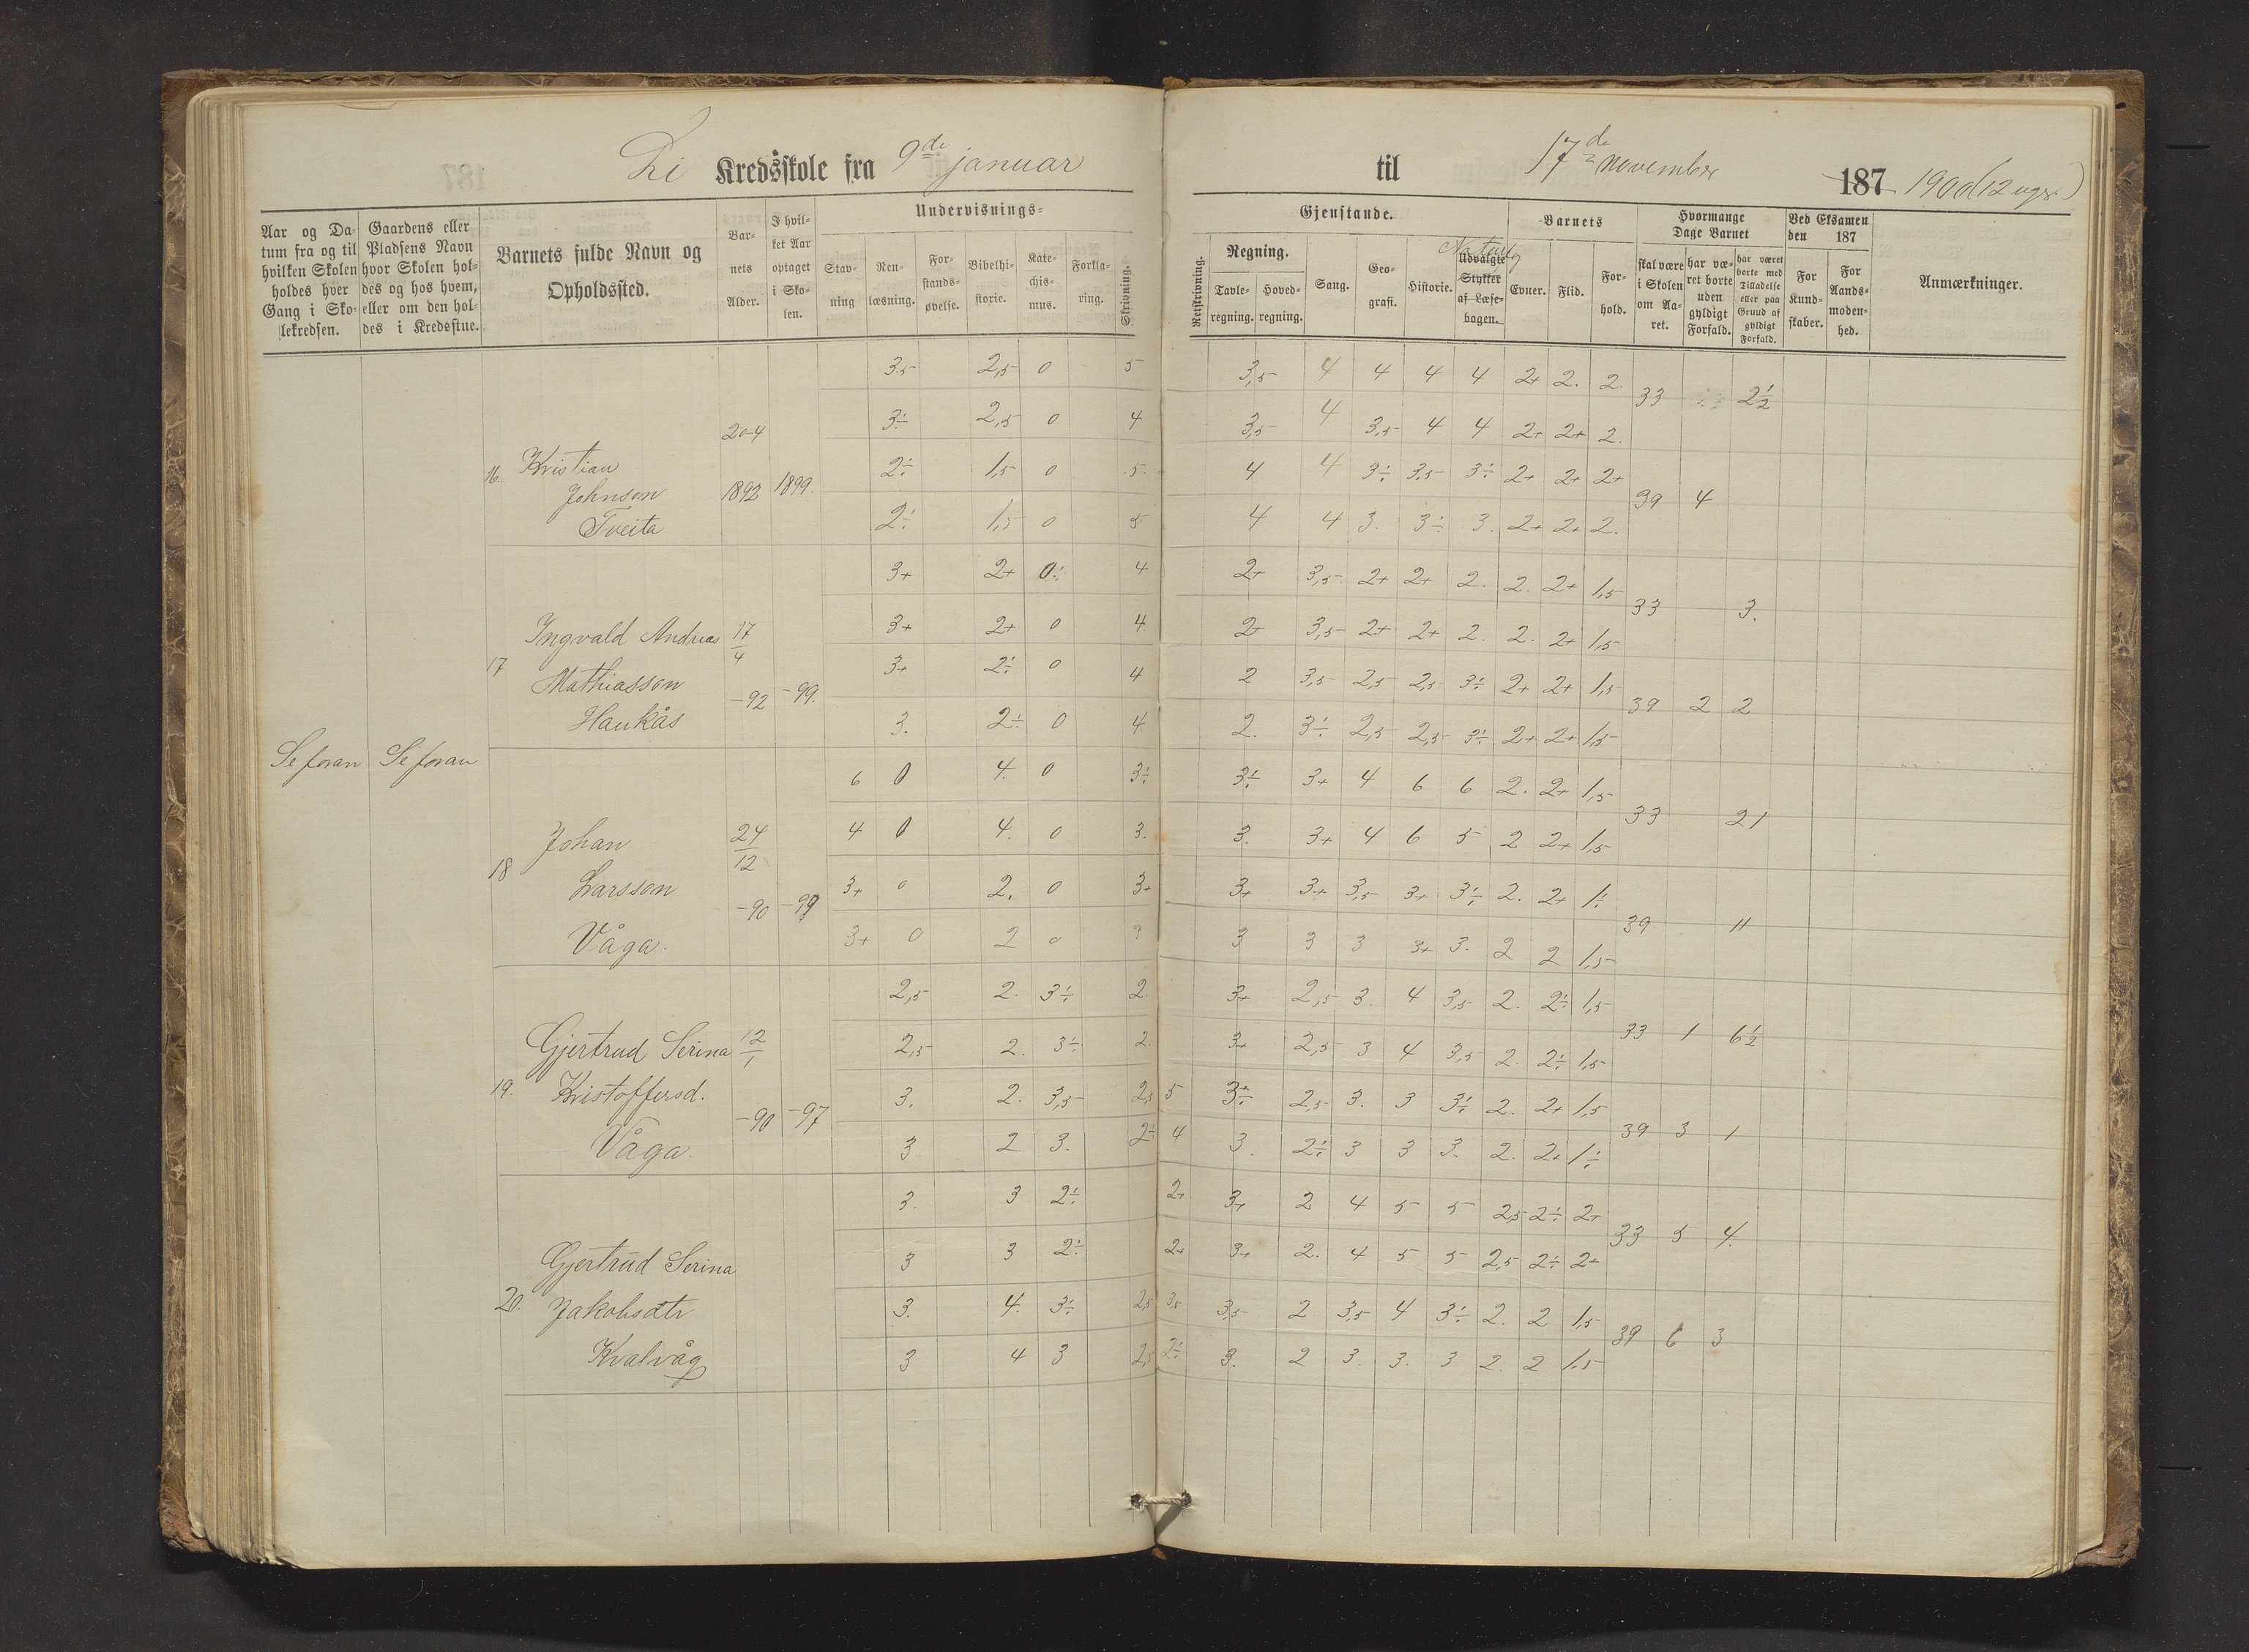 Li Kredsskole fra 9de januar til 17de november 187 1900 (12 uger)
Aar og Da-
tum fra og til
hvilken Skolen
holdes hver
Gang i Sko-
lekredsen.
Gaardens eller
Pladsens Navn
hvor Skolen hol-
des og hos hvem,
eller om den hol-
des i Kredsstue.
Barnets fulde Navn og
Opholdssted.
Bar-
nets
Alder.
I hvil-
ket Aar
optaget
i Sko-
len.
Undervisnings-
Stav-
ning
Ren-
læsning.
For-
stands-
øvelse.
Bibelhi-
storie.
Kate-
chis-
mus.
Forkla-
ring.
Skrivning.
Gjenstande.
Retskrivning.
Regning.
Tavle-
regning.
Hoved-
regning.
Sang.
Geo-
grafi.
Historie.
Naturfg
Udvalgte
Stykker
af Læse-
bogen.
Barnets
Evner.
Flid.
For-
hold.
Hvormange
Dage Barnet
skal være
i Skolen
om Aa-
ret.
har væ-
ret borte
uden
gyldigt
Forfald.
har været
borte med
Tilladelse
eller paa
Grund af
gyldigt
Forfald.
Ved Eksamen
den 187
For
Kund-
skaber.
For
Aands-
moden-
hed.
Anmærkninger.
Se foran Se foran
3,5 2,5 0 5 3,5 4 4 4 4 2+ 2. 2.
33 2½
3÷ 2,5 0 4 3,5 4 3,5 4 4 2+ 2+ 2.
20-4
16. Kristian
2÷ 1,5 0 5. 4 4 3÷ 3,5 3÷ 2+ 2+ 2+
Johnson 1892 1899. 39 4
Tveita
2÷ 1,5 0 5 4 4 3. 3÷ 3. 2+ 2+ 2.
3+ 2+ 0÷ 4 2+ 3,5 2+ 2+ 2. 2. 2+ 1,5
33 3.
3+ 2+ 0 4 2+ 3,5 2+ 2+ 2. 2. 2+ 1,5
Ingvald Andreas 17/4
17 3+ 2÷ 0 4 2 3,5 2,5 2,5 3÷ 2+ 2+ 1,5
Mathiasson -92 -99. 39 2 2
Haukås
3. 2÷ 0 4 2. 3÷ 2,5 2,5 3÷ 2+ 2+ 1,5
6 0 4. 0 3÷ 3÷ 3+ 4 6 6 2. 2+ 1,5
33 21
4 0 4. 0 3. 3. 3+ 4 6 5 2 2+ 1,5
Johan 24/12
18 3+ 0 2. 0 3+ 3+ 3+ 3,5 3+ 3÷ 2. 2+ 1÷
Larsson -90 -99 39 11
Våga.
3+ 0 2 0 3 3 3 3 3+ 3. 2 2 1,5
2,5 2. 3÷ 2. 3+ 2,5 3. 4 3,5 2. 2÷ 1,5
33 1 6½
Gjertrud Serina 12/1
2,5 2. 3÷ 2. 3+ 2,5 3 4 3,5 2. 2÷ 1,5
19. Kristoffersd.
3. 2. 3,5 2,5 5 3÷ 2,5 3. 3 3÷ 2. 2+ 1,5
-90 -97 39 3 1
Våga.
3 2 3. 2÷ 4 3. 2÷ 3 3 3. 2. 2+ 1÷
3. 3 2÷ 2+ 3+ 2 4 5 5 2,5 2÷ 2+
33 5 4.
Gjertrud Serina
3 3 2÷ 2+ 3+ 2. 4 5 5 2,5 2÷ 2+
20. Jakobsdtr
3. 4. 3÷ 2,5 3,5 3,5 2 3,5 4 3÷ 2. 2 1,5
39 6 3
Kvalvåg
3 4 3 2,5 2÷ 3. 2 3. 3. 3 2. 2 1,5